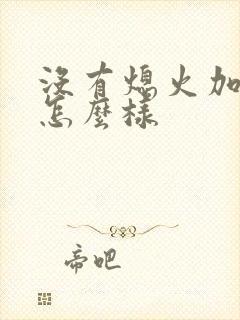 沒有熄火加
怎麼樣
帝吧